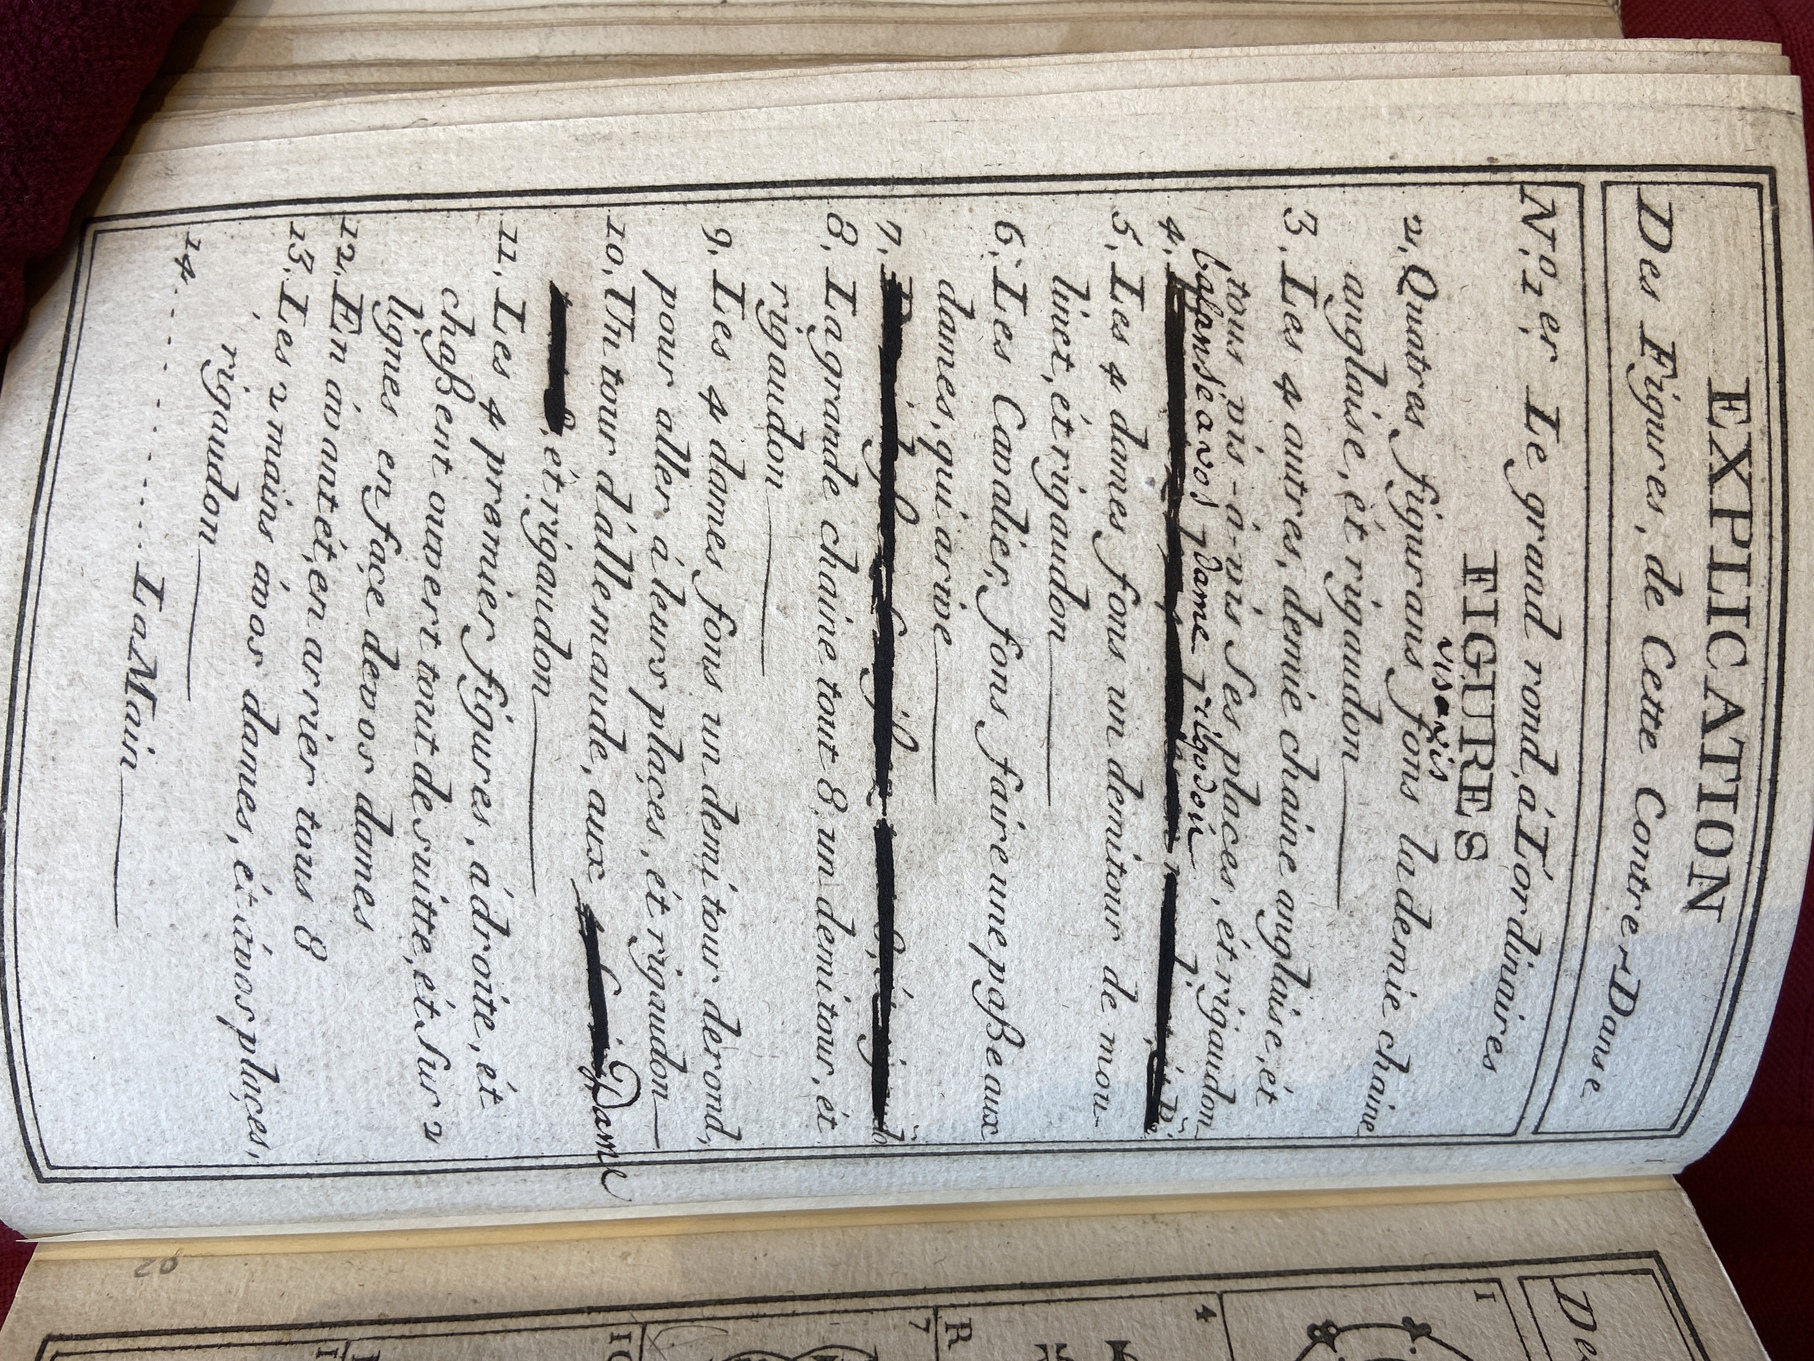 EXPLICATION
Des Figures, de Cette ContrerDanse
N.º 1.er Le grand rond, à L'ordinaires
FIGURES
vis a vis
2. Quatres figurans fons la demie chaine
anglaise, ét rigaudon
3. Les 4 autres, demie chaine anglaise, ét
tous vis-à-vis Ses places, ét rigaudon
balanse a vos dame rigodon
4.
5. Les 4 dames fons un demitour de mou-
linet, ét rigaudon
6. Les Cavalier, fons faire une paße aux
dames, qui arive
7.
8. La grande chaine tout 8, un demi tour, ét
rigaudon
9. Les 4 dames fons un demi tour de rond,
pour aller á leurs places, ét rigaudon
10. Un tour d'allemande, aux Dame
ét rigaudon
11. Les 4 premier figures, á droite, ét
chaßent ouvert tout de suitte, ét Sur 2
lignes en façe de vos dames
12. En avant ét, en arrier tous 8
13. Les 2 mains ávos dames, ét ávos plaçes,
rigaudon
14. ........... La Main
92
De
1
4
R
7